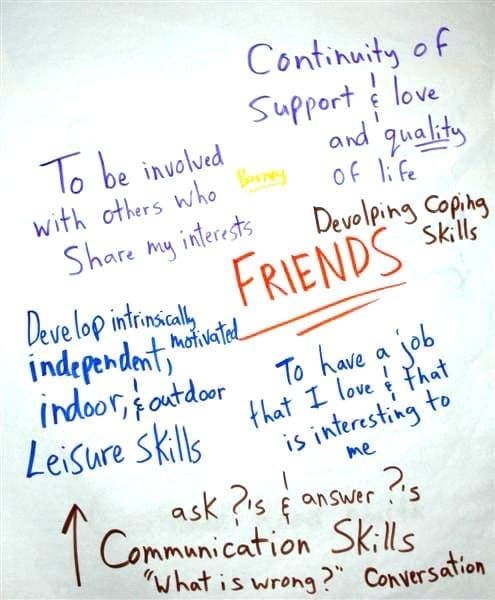 Continuity of
Support & love
and quality
of life
To be involved
with others who
Share my interests
Barney
Devolping Coping
Skills
FRIENDS
Develop intrinsically
motivated
independent,
indoor, & outdoor
Leisure Skills
To have a job
that I love & that
is interesting to
me
ask ?'s & answer ?'s
↑ Communication Skills
"What is wrong?" Conversation